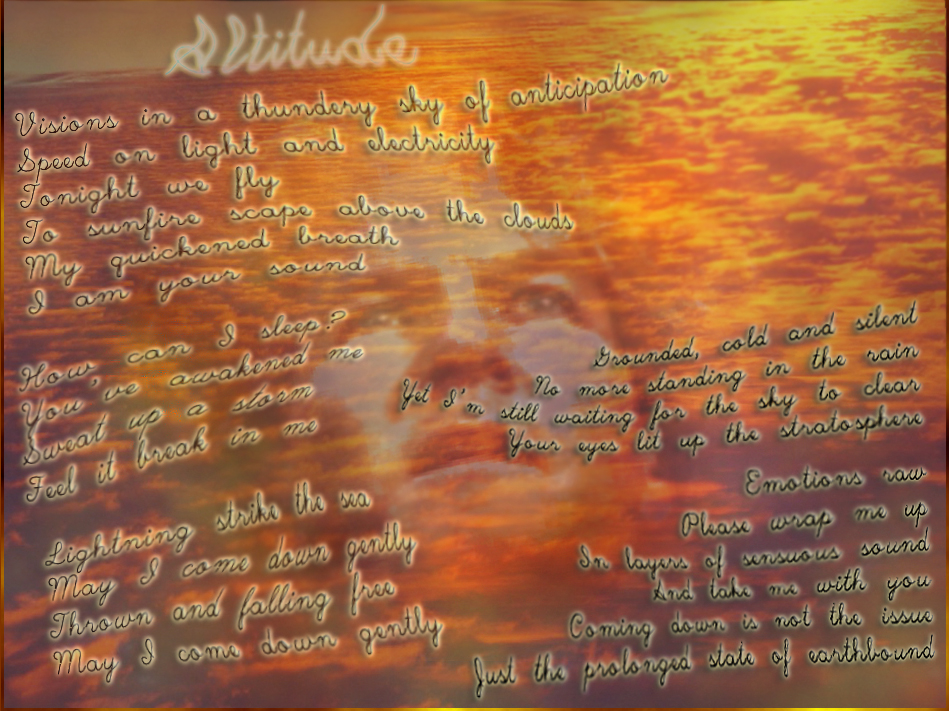 Altitude
Visions in a thundery sky of anticipation
Speed on light and electricity
Tonight we fly
To sunfire scape above the clouds
My quickened breath
I am your sound
How can I sleep?
You've awakened me
Sweat up a storm
Feel it break in me
Grounded, cold and silent
No more standing in the rain
Yet I'm still waiting for the sky to clear
Your eyes lit up the stratosphere
Lightning strike the sea
May I come down gently
Thrown and falling free
May I come down gently
Emotions raw
Please wrap me up
In layers of sensuous sound
And take me with you
Coming down is not the issue
Just the prolonged state of earthbound